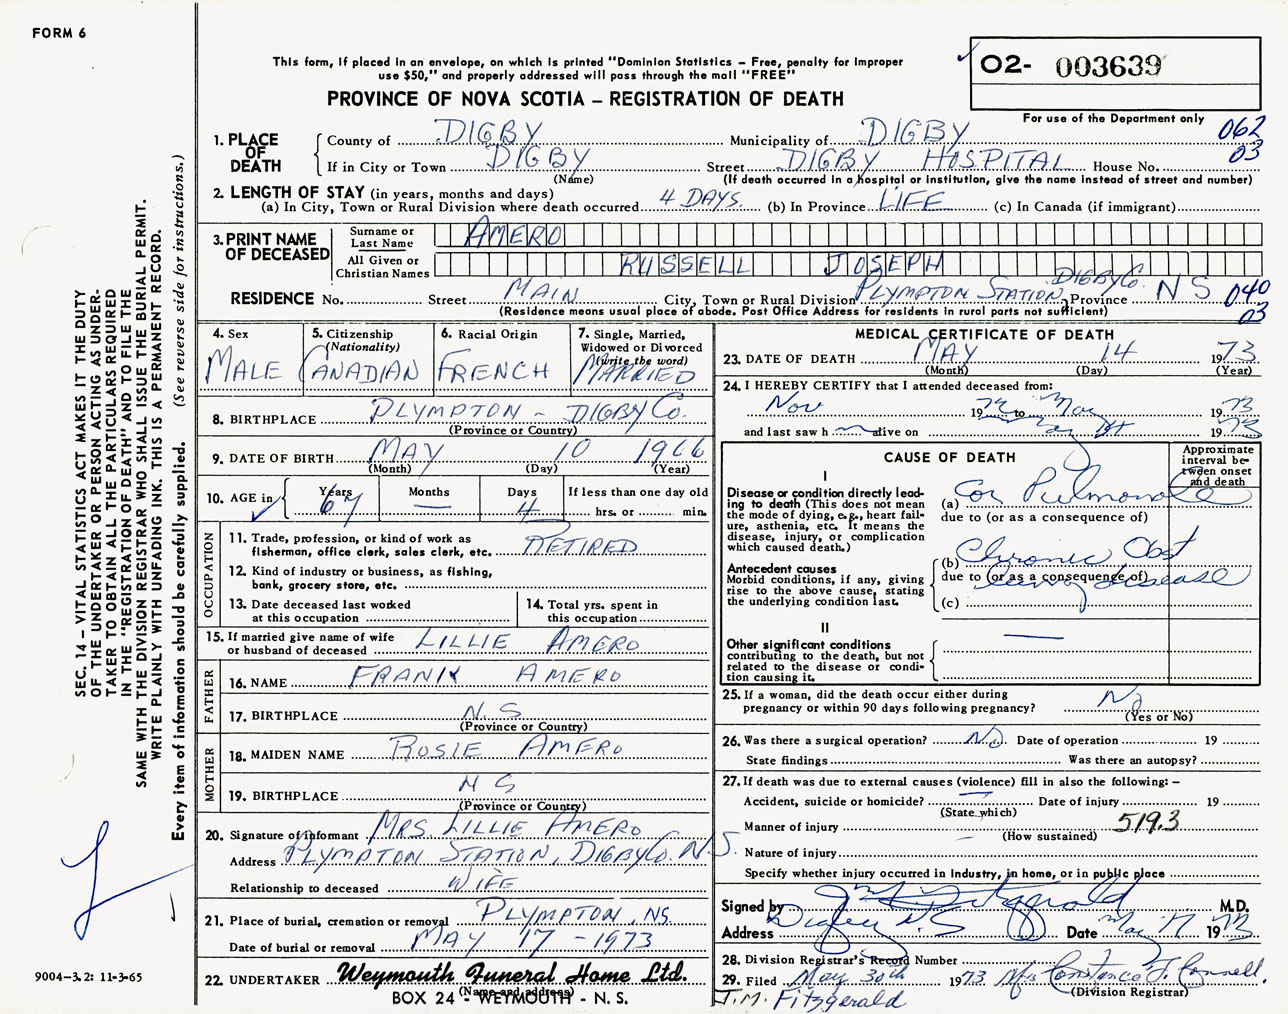 FORM 6
This form, if placed in an envelope, on which is printed "Dominion Statistics – Free, penalty for improper
use $50," and properly addressed will pass through the mail "FREE"
02- 003639
PROVINCE OF NOVA SCOTIA – REGISTRATION OF DEATH
For use of the Department only
062
03
1. PLACE OF DEATH
County of DIGBY Municipality of DIGBY
If in City or Town DIGBY Street DIGBY HOSPITAL House No.
(Name) (If death occurred in a hospital or institution, give the name instead of street and number)
2. LENGTH OF STAY (in years, months and days)
(a) In City, Town or Rural Division where death occurred 4 DAYS. (b) In Province LIFE (c) In Canada (if immigrant)
3. PRINT NAME OF DECEASED
Surname or Last Name AMERO
All Given or Christian Names RUSSELL JOSEPH
RESIDENCE No. Street MAIN City, Town or Rural Division PLYMPTON STATION DIGBY CO. Province NS
040
03
(Residence means usual place of abode. Post Office Address for residents in rural parts not sufficient)
4. Sex MALE
5. Citizenship (Nationality) CANADIAN
6. Racial Origin FRENCH
7. Single, Married, Widowed or Divorced (write the word) MARRIED
8. BIRTHPLACE PLYMPTON – DIGBY CO.
(Province or Country)
9. DATE OF BIRTH MAY 10 1906
(Month) (Day) (Year)
10. AGE in Years 67 Months — Days 4 If less than one day old hrs. or min.
OCCUPATION
11. Trade, profession, or kind of work as fisherman, office clerk, sales clerk, etc. RETIRED
12. Kind of industry or business, as fishing, bank, grocery store, etc.
13. Date deceased last worked at this occupation
14. Total yrs. spent in this occupation
15. If married give name of wife or husband of deceased LILLIE AMERO
FATHER
16. NAME FRANK AMERO
17. BIRTHPLACE N.S
(Province or Country)
MOTHER
18. MAIDEN NAME ROSIE AMERO
19. BIRTHPLACE N S
(Province or Country)
20. Signature of informant MRS. LILLIE AMERO
Address PLYMPTON STATION, DIGBY CO. N.S.
Relationship to deceased WIFE
21. Place of burial, cremation or removal PLYMPTON, N.S.
Date of burial or removal MAY 17 - 1973
22. UNDERTAKER Weymouth Funeral Home Ltd.
(Name and address)
BOX 24 - WEYMOUTH - N. S.
MEDICAL CERTIFICATE OF DEATH
23. DATE OF DEATH MAY 14 1973
(Month) (Day) (Year)
24. I HEREBY CERTIFY that I attended deceased from:
Nov 1972 to May 1973
and last saw h alive on May 1973
CAUSE OF DEATH
Approximate interval between onset and death
I
Disease or condition directly leading to death (This does not mean the mode of dying, e.g., heart failure, asthenia, etc. It means the disease, injury, or complication which caused death.)
(a) Cor Pulmonale
due to (or as a consequence of)
Antecedent causes
Morbid conditions, if any, giving rise to the above cause, stating the underlying condition last.
(b) Chronic Obst
due to (or as a consequence of)
lung disease
(c)
II
Other significant conditions
contributing to the death, but not related to the disease or condition causing it.
25. If a woman, did the death occur either during
pregnancy or within 90 days following pregnancy? No
(Yes or No)
26. Was there a surgical operation? No Date of operation 19
State findings Was there an autopsy?
27. If death was due to external causes (violence) fill in also the following: –
Accident, suicide or homicide? Date of injury 19
(State which)
Manner of injury 519.3
(How sustained)
Nature of injury
Specify whether injury occurred in industry, in home, or in public place
Signed by J M Fitzgerald M.D.
Address Digby N.S Date May 17 1973
28. Division Registrar's Record Number
29. Filed May 30th 1973 Mrs Constance J. Connell.
(Division Registrar)
J.M. Fitzgerald
SEC. 14 – VITAL STATISTICS ACT MAKES IT THE DUTY
OF THE UNDERTAKER OR PERSON ACTING AS UNDER-
TAKER TO OBTAIN ALL THE PARTICULARS REQUIRED
IN THE "REGISTRATION OF DEATH" AND TO FILE THE
SAME WITH THE DIVISION REGISTRAR WHO SHALL ISSUE THE BURIAL PERMIT.
WRITE PLAINLY WITH UNFADING INK. THIS IS A PERMANENT RECORD.
Every item of information should be carefully supplied. (See reverse side for instructions.)
9004-3.2: 11-3-65